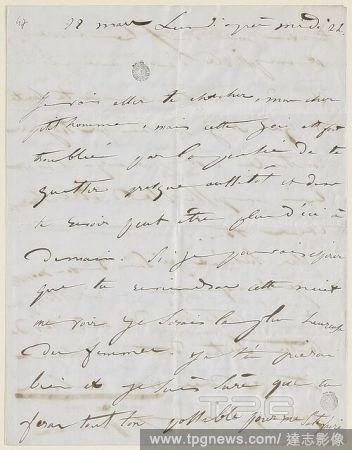 22 mars Lundi après midi 2h.
Je vais aller te chercher, mon cher
petit homme, mais cette joie est
troublée par la pensée de te
quitter presque aussitôt et de ne
te revoir peut-être plus d'ici à
demain. Si je pouvais espérer
que tu reviendras cette nuit
me voir je serais la plus heureuse
des femmes. Je t'en prierai
bien et je suis sûre que tu
feras tout ton possible pour me satisfaire
TPG
www.tpgnews.com/達志影像